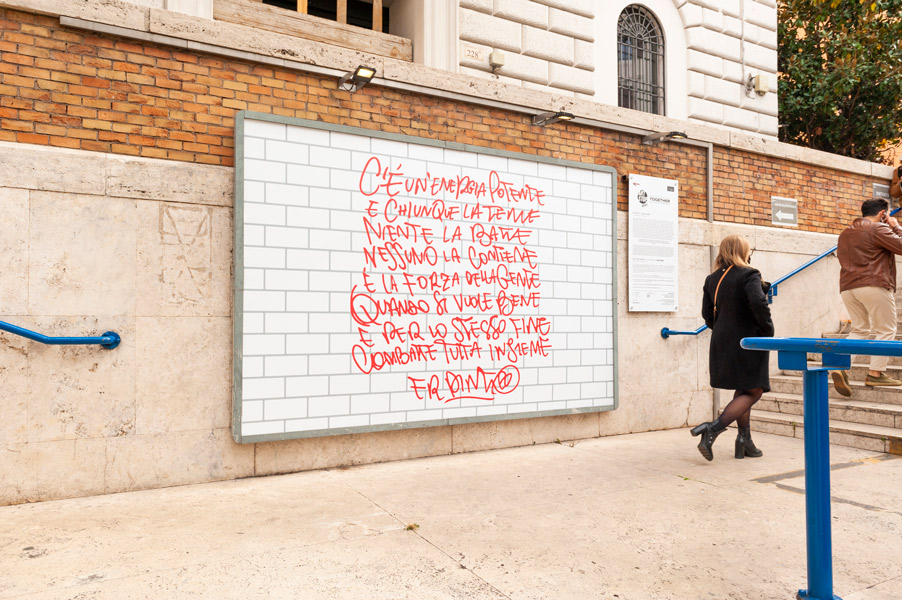 C'È UN'ENERGIA POTENTE
E CHIUNQUE LA TEME
NIENTE LA BATTE
NESSUNO LA CONTIENE
È LA FORZA DELLA GENTE
QUANDO SI VUOLE BENE
E PER LO STESSO FINE
COMBATTE TUTTA INSIEME
ER PINTO
228
TOGETHER